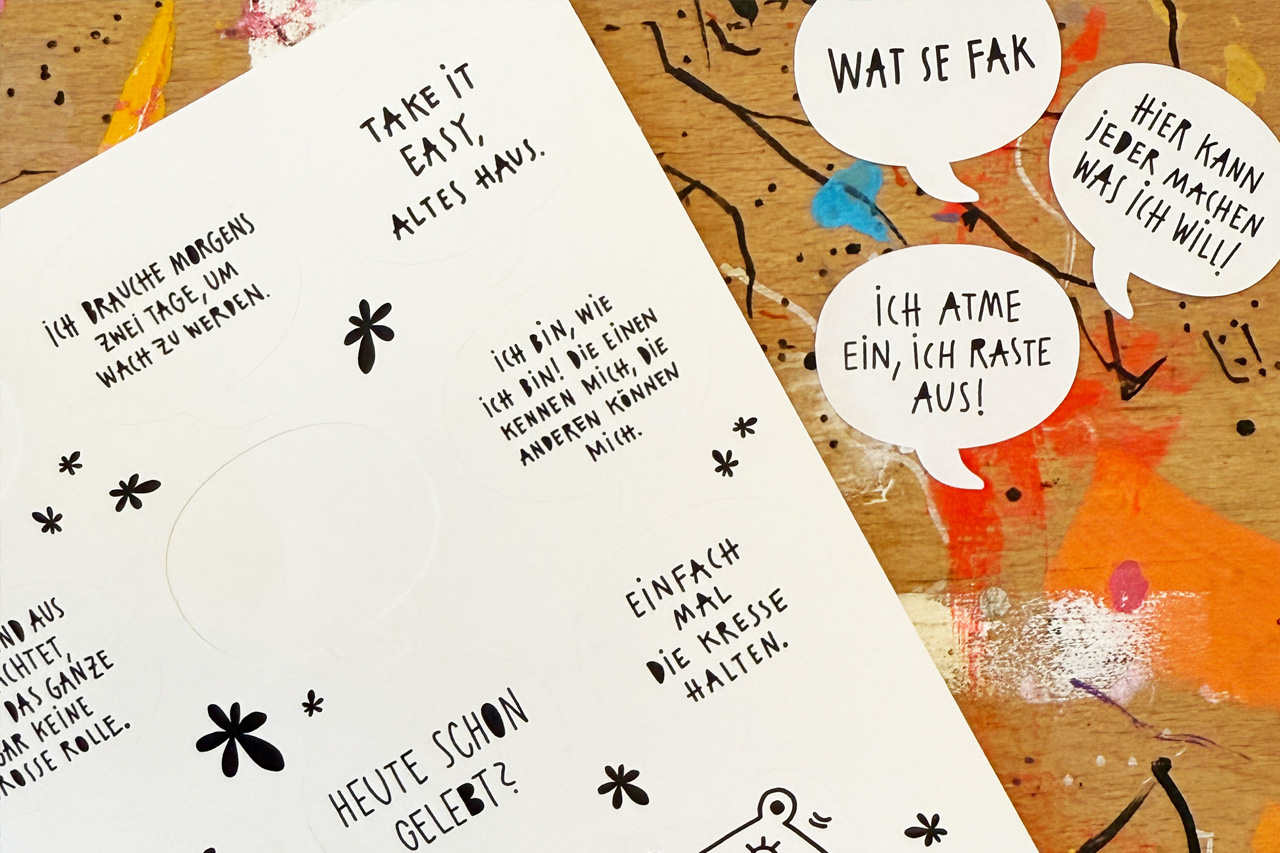 TAKE iT
EASY,
ALTES HAUS.
iCH BRAUCHE MORGENS
ZWEi TAGE, UM
WACH ZU WERDEN.
iCH BiN, WiE
iCH BiN! DiE EiNEN
KENNEN MiCH, DiE
ANDEREN KÖNNEN
MiCH.
EiNFACH
MAL
DiE KRESSE
HALTEN.
AUS
DAS GANZE
KEiNE
ROLLE.
HEUTE SCHON
GELEBT?
WAT SE FAK
HiER KANN
JEDER MACHEN
WAS iCH WiLL!
iCH ATME
EiN, iCH RASTE
AUS!